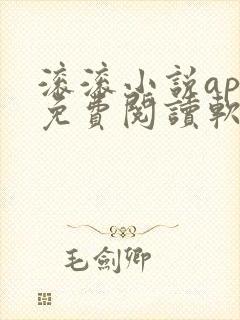 滚滚小説ap
免費閱讀軟
毛劍卿